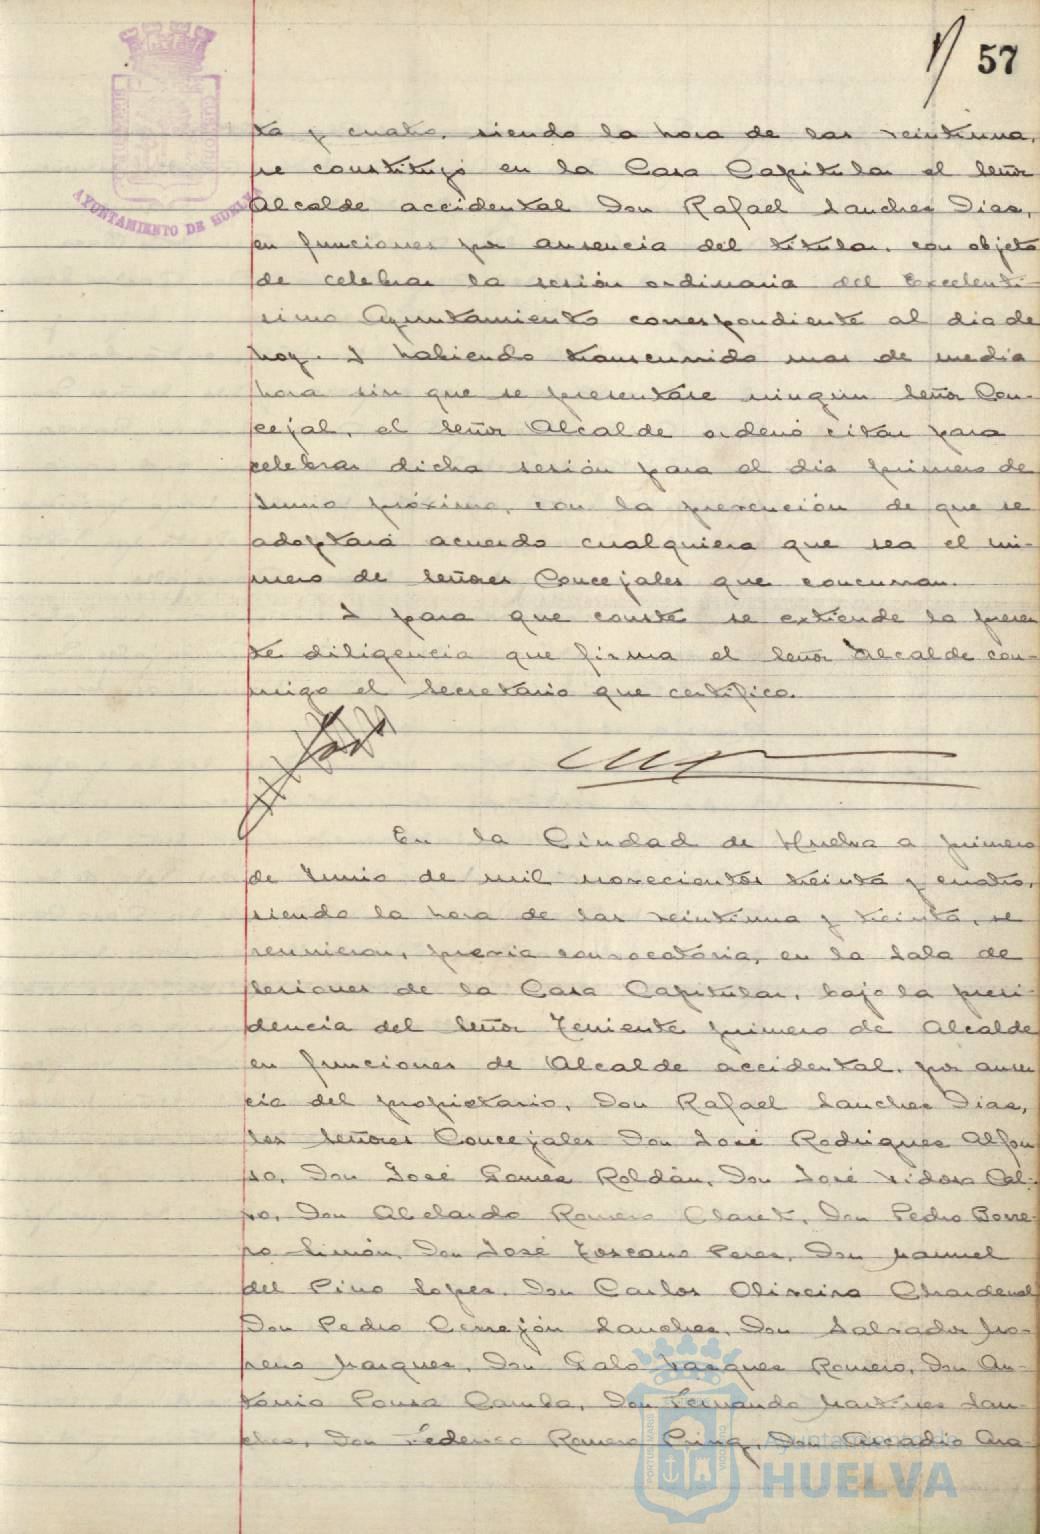 57
AYUNTAMIENTO DE HUELVA
ta y cuatro, siendo la hora de las veintiuna,
se constituyó en la Casa Capitular el Señor
Alcalde accidental Don Rafael Sanchez Diaz,
en funciones por ausencia del titular, con objeto
de celebrar la sesión ordinaria del Excelentí-
simo Ayuntamiento correspondiente al dia de
hoy. Y habiendo transcurrido mas de media
hora sin que se presentase ningún Señor Con-
cejal, el Señor Alcalde ordenó citar para
celebrar dicha sesión para el dia primero de
Junio próximo, con la prevención de que se
adoptará acuerdo cualquiera que sea el nú-
mero de Señores Concejales que concurran.
Y para que conste se extiende la presen
te diligencia que firma el Señor Alcalde con-
migo el Secretario que certifico.
En la Ciudad de Huelva a primero
de Junio de mil novecientos treinta y cuatro,
siendo la hora de las veintiuna y treinta, se
reunieron, previa convocatoria, en la Sala de
Sesiones de la Casa Capitular, bajo la presi-
dencia del Señor Teniente primero de Alcalde
en funciones de Alcalde accidental, por ausen
cia del propietario, Don Rafael Sanchez Diaz,
los Señores Concejales Don José Rodriguez Alfon
so, Don José Gomez Roldán, Don José Isidoro Cal-
vo, Don Abelardo Romero Claret, Don Pedro Borre-
ro Limón, Don José Toscano Perez, Don Manuel
del Pino Lopez, Don Carlos Oliveira Chardenal
Don Pedro Cerrejón Sanchez, Don Salvador Mo-
reno Marquez, Don Galo Vazquez Romero, Don An-
tonio Pousa Camba, Don Fernando Martinez San-
chez, Don Federico Romero Don Arcadio Ara-
Ayuntamiento de
HUELVA